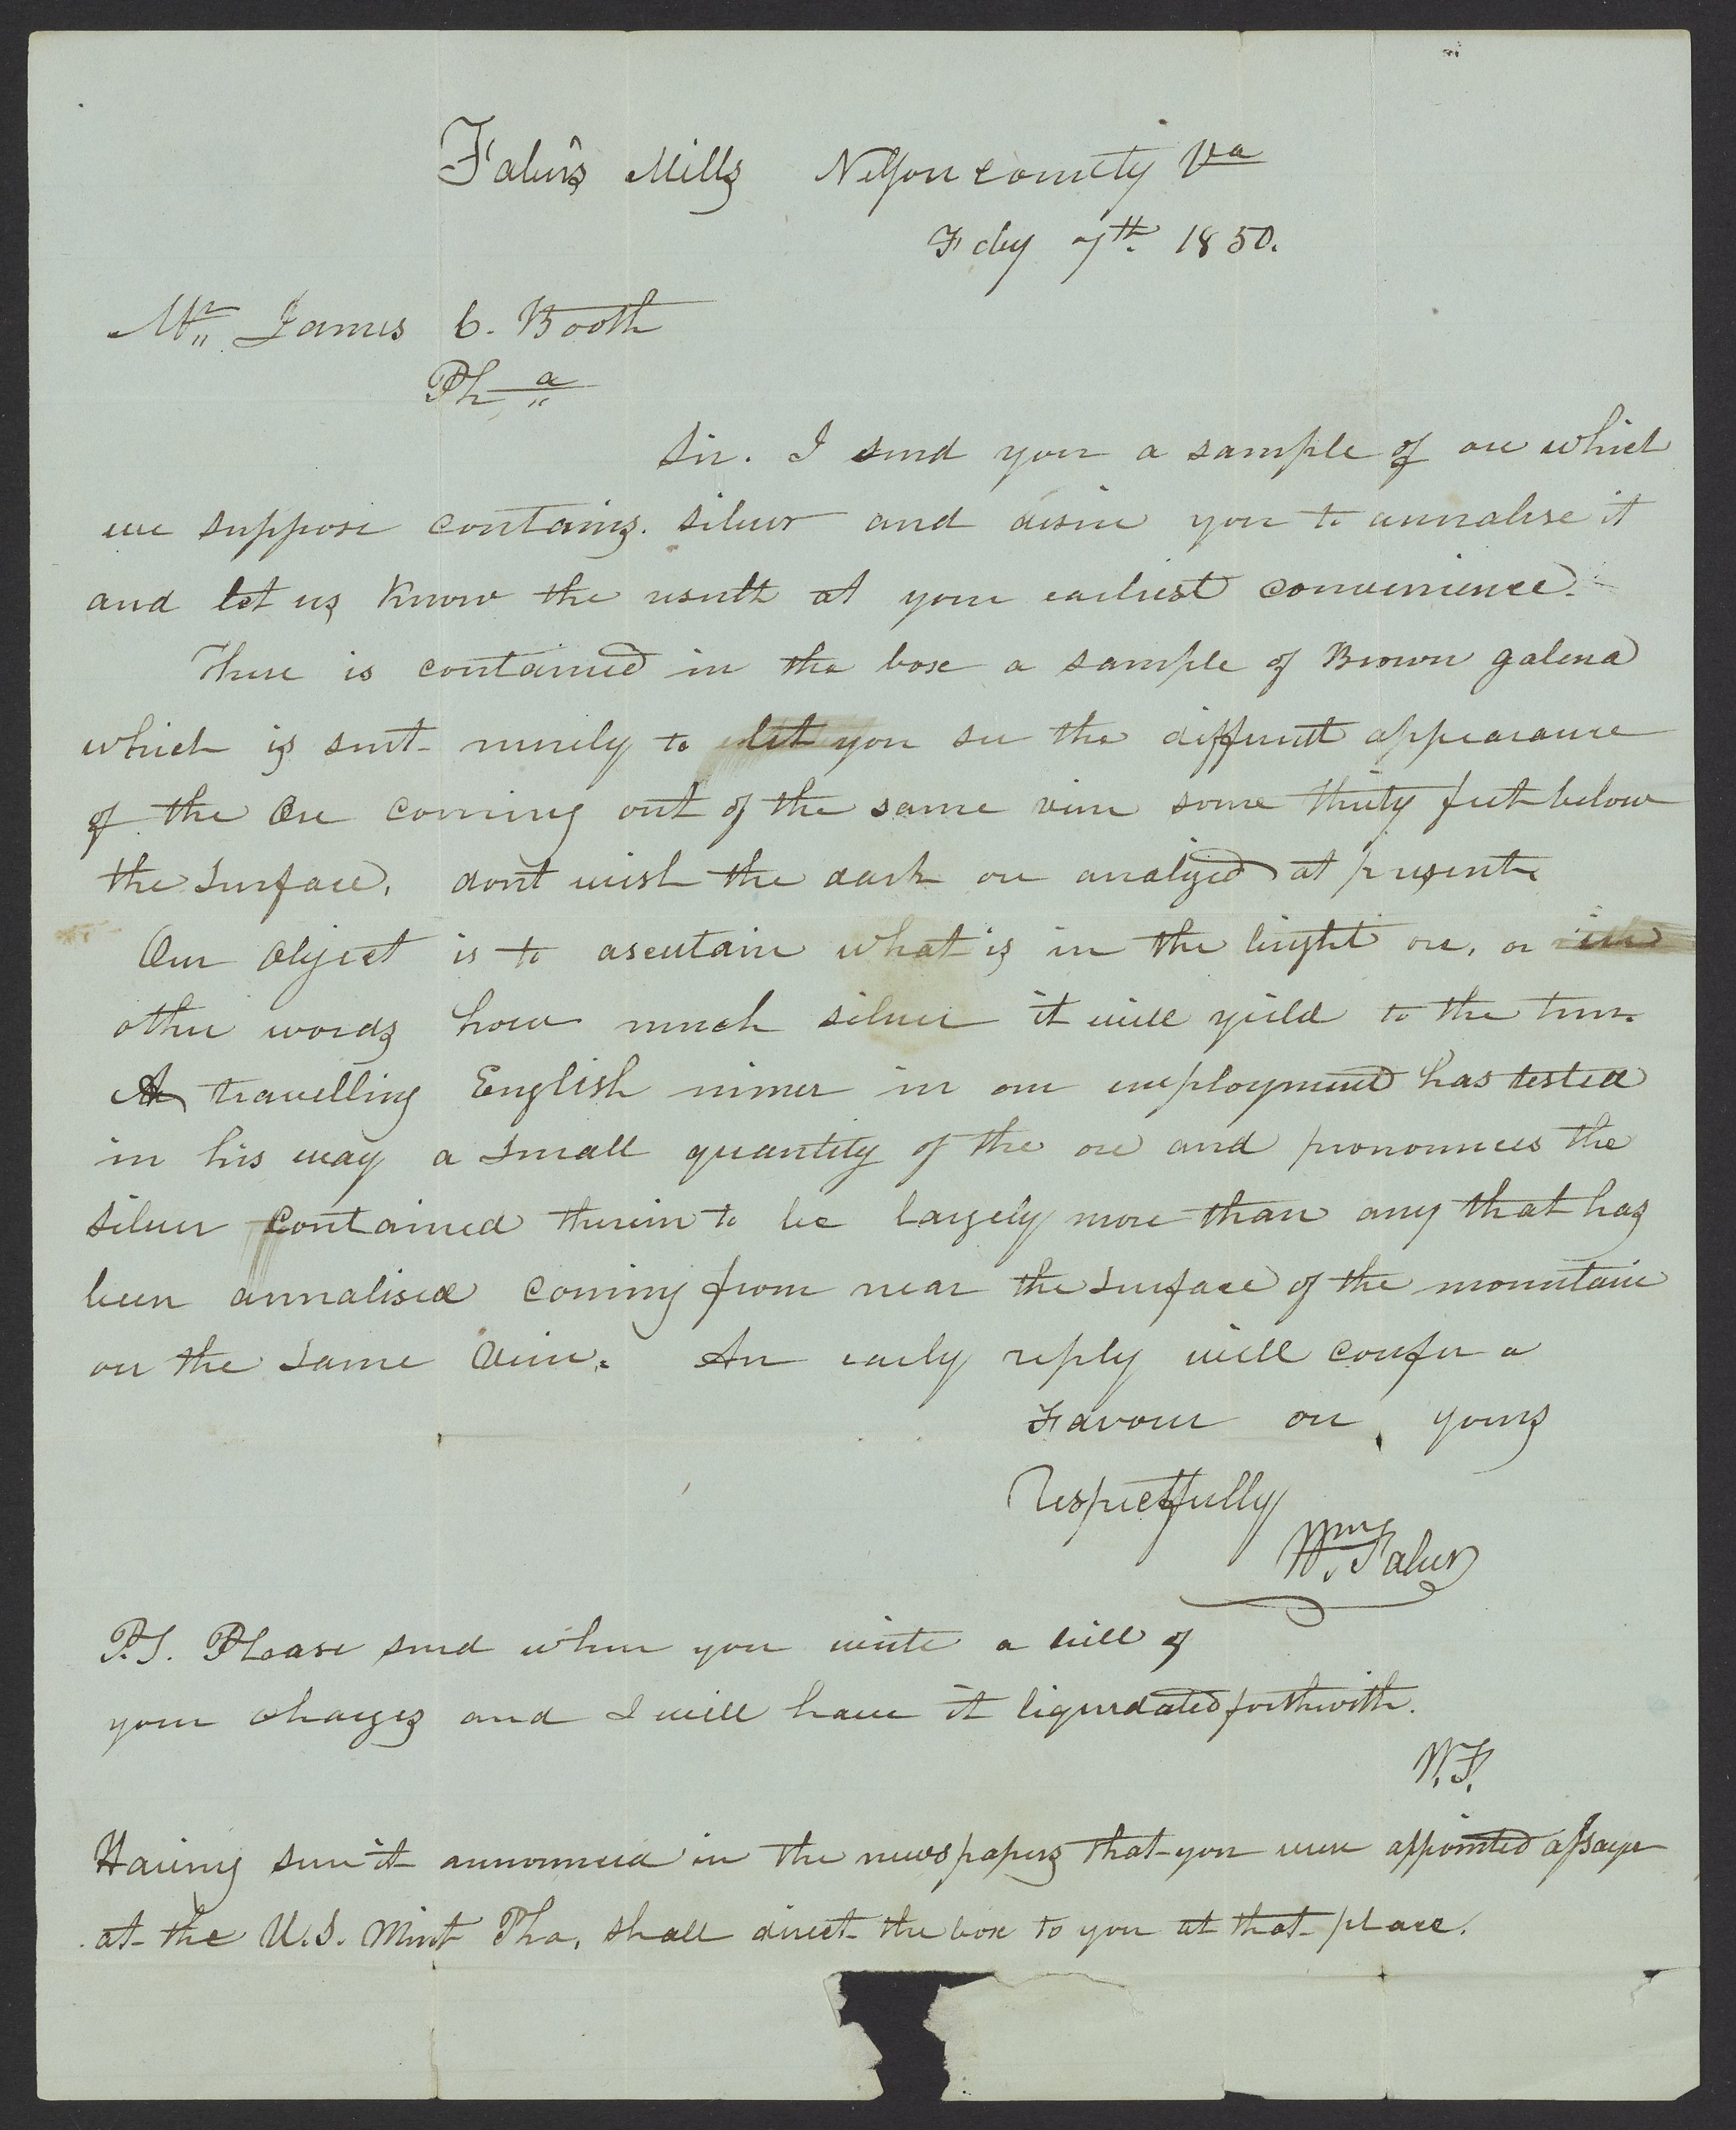 Faber's Mills Nelson county Va
Feby 7th 1850.
Mr James C. Booth
Pha
Sir. I send you a sample of ore which
we suppose contains silver and desire you to annalise it
and let us know the result at your earliest convenience.
There is contained in the box a sample of Brown galena
which is sent merely to let you see the different appearance
of the Ore coming out of the same vein some thirty feet below
the surface, dont wish the dark ore analized at present.
Our object is to asertain what is in the bright ore, or in
other words how much silver it will yield to the tun.
A travelling English miner in our employment has tested
in his way a small quantity of the ore and pronounces the
silver contained therein to be largely more than any that has
been annalised coming from near the surface of the mountain
on the same vein. An early reply will confer a
Favour on yours
Respectfully
Wm. Faber
P.S. Please send when you write a bill of
your charges and I will have it liquidated forthwith.
W.F.
Having seen it announced in the newspapers that you were appointed assayer
at the U.S. Mint Pha, shall direct the box to you at that place.